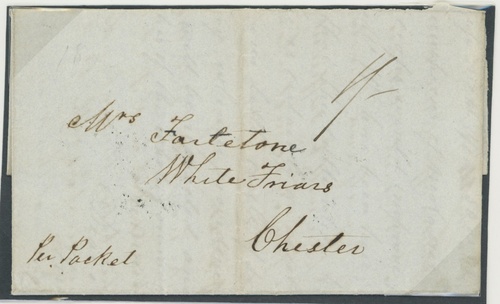 1/-
Mrs Tartetone
White Friars
Chester
Per Packet